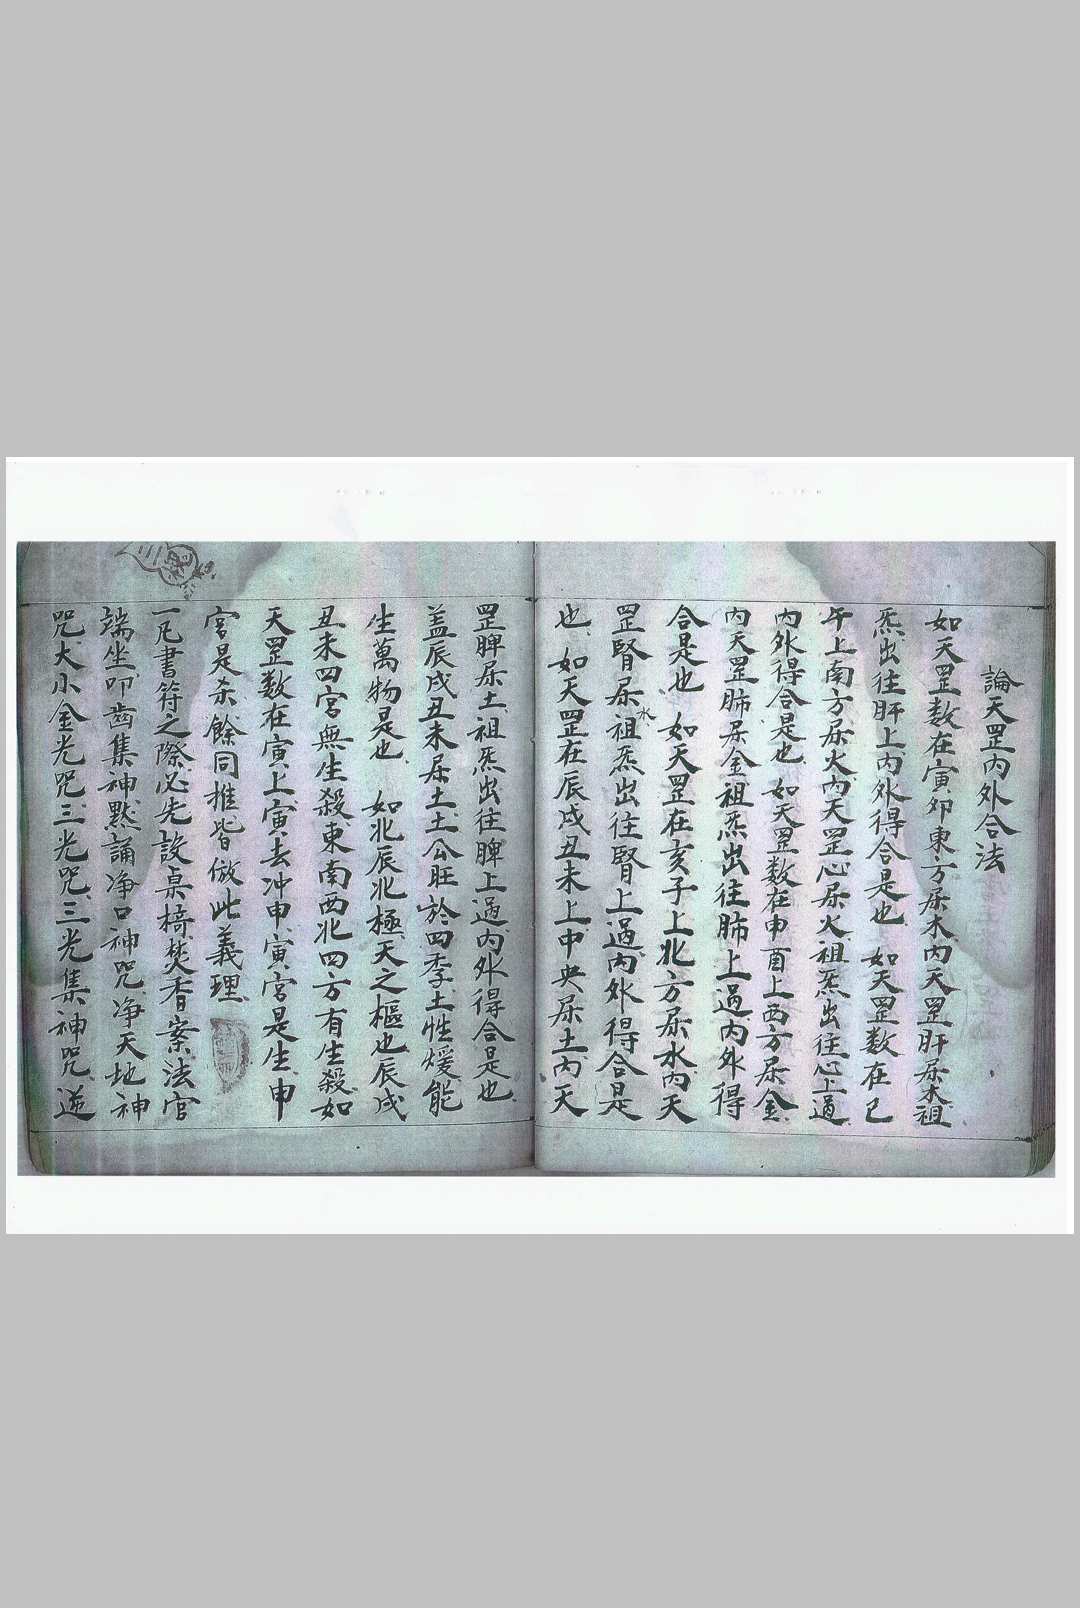 論天罡内外合法
如天罡数在寅卯東方屬木内天罡肝屬木祖
炁出往肝上内外得合是也 如天罡数在巳
午上南方屬火内天罡心屬火祖炁出往心上過
内外得合是也 如天罡数在申酉上西方屬金
内天罡肺屬金祖炁出往肺上過内外得
合是也 如天罡在亥子上北方屬水内天
罡腎屬水祖炁出往腎上過内外得合是
也 如天罡在辰戌丑未上中央屬土内天
罡脾屬土祖炁出往脾上過内外得合是也
盖辰戌丑未屬土土公旺於四季土性煖能
生萬物是也 如北辰北極天之樞也辰戌
丑未四宮無生殺東南西北四方有生殺如
天罡数在寅上寅去冲申寅宮是生申
宮是杀餘同推皆倣此義理
一凡書符之際必先設桌椅焚香案法官
端坐叩齒集神默誦净口神咒净天地神
咒大小金光咒三光咒三光集神咒逆